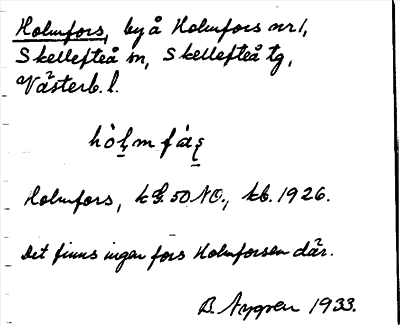 Holmfors, by å Holmfors nr 1,
Skellefteå sn, Skellefteå tg,
Västerb. l.
Holmfors, kbl. 50 NO., kb. 1926.
Det finns ingen fors Holmforsen där.
B. Nygren 1933.